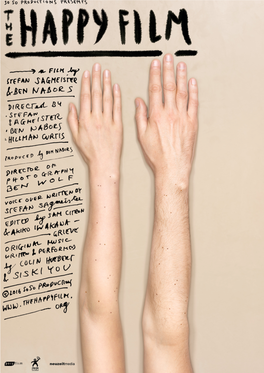 SO SO PRODUCTIONS PRESENTS
THE HAPPY FILM
→ a FILM by
STEFAN SAGMEISTER
& BEN NABORS
DIRECTED BY
• STEFAN
SAGMEISTER
• BEN NABORS
• HILLMAN CURTIS
PRODUCED by BEN NABORS
DIRECTOR OF
PHOTOGRAPHY
BEN WOLF
VOICE OVER WRITTEN BY
STEFAN SAgmeister
EDITED by SAM CITRON
& AMIKO IWAKANA-
GRIEVE
ORIGINAL MUSIC
WRITTEN & PERFORMED
by COLIN HUEBERT
& SISKIYOU
©2016 SoSo PRODUCTIONS
WWW.THEHAPPYFILM.
ORG